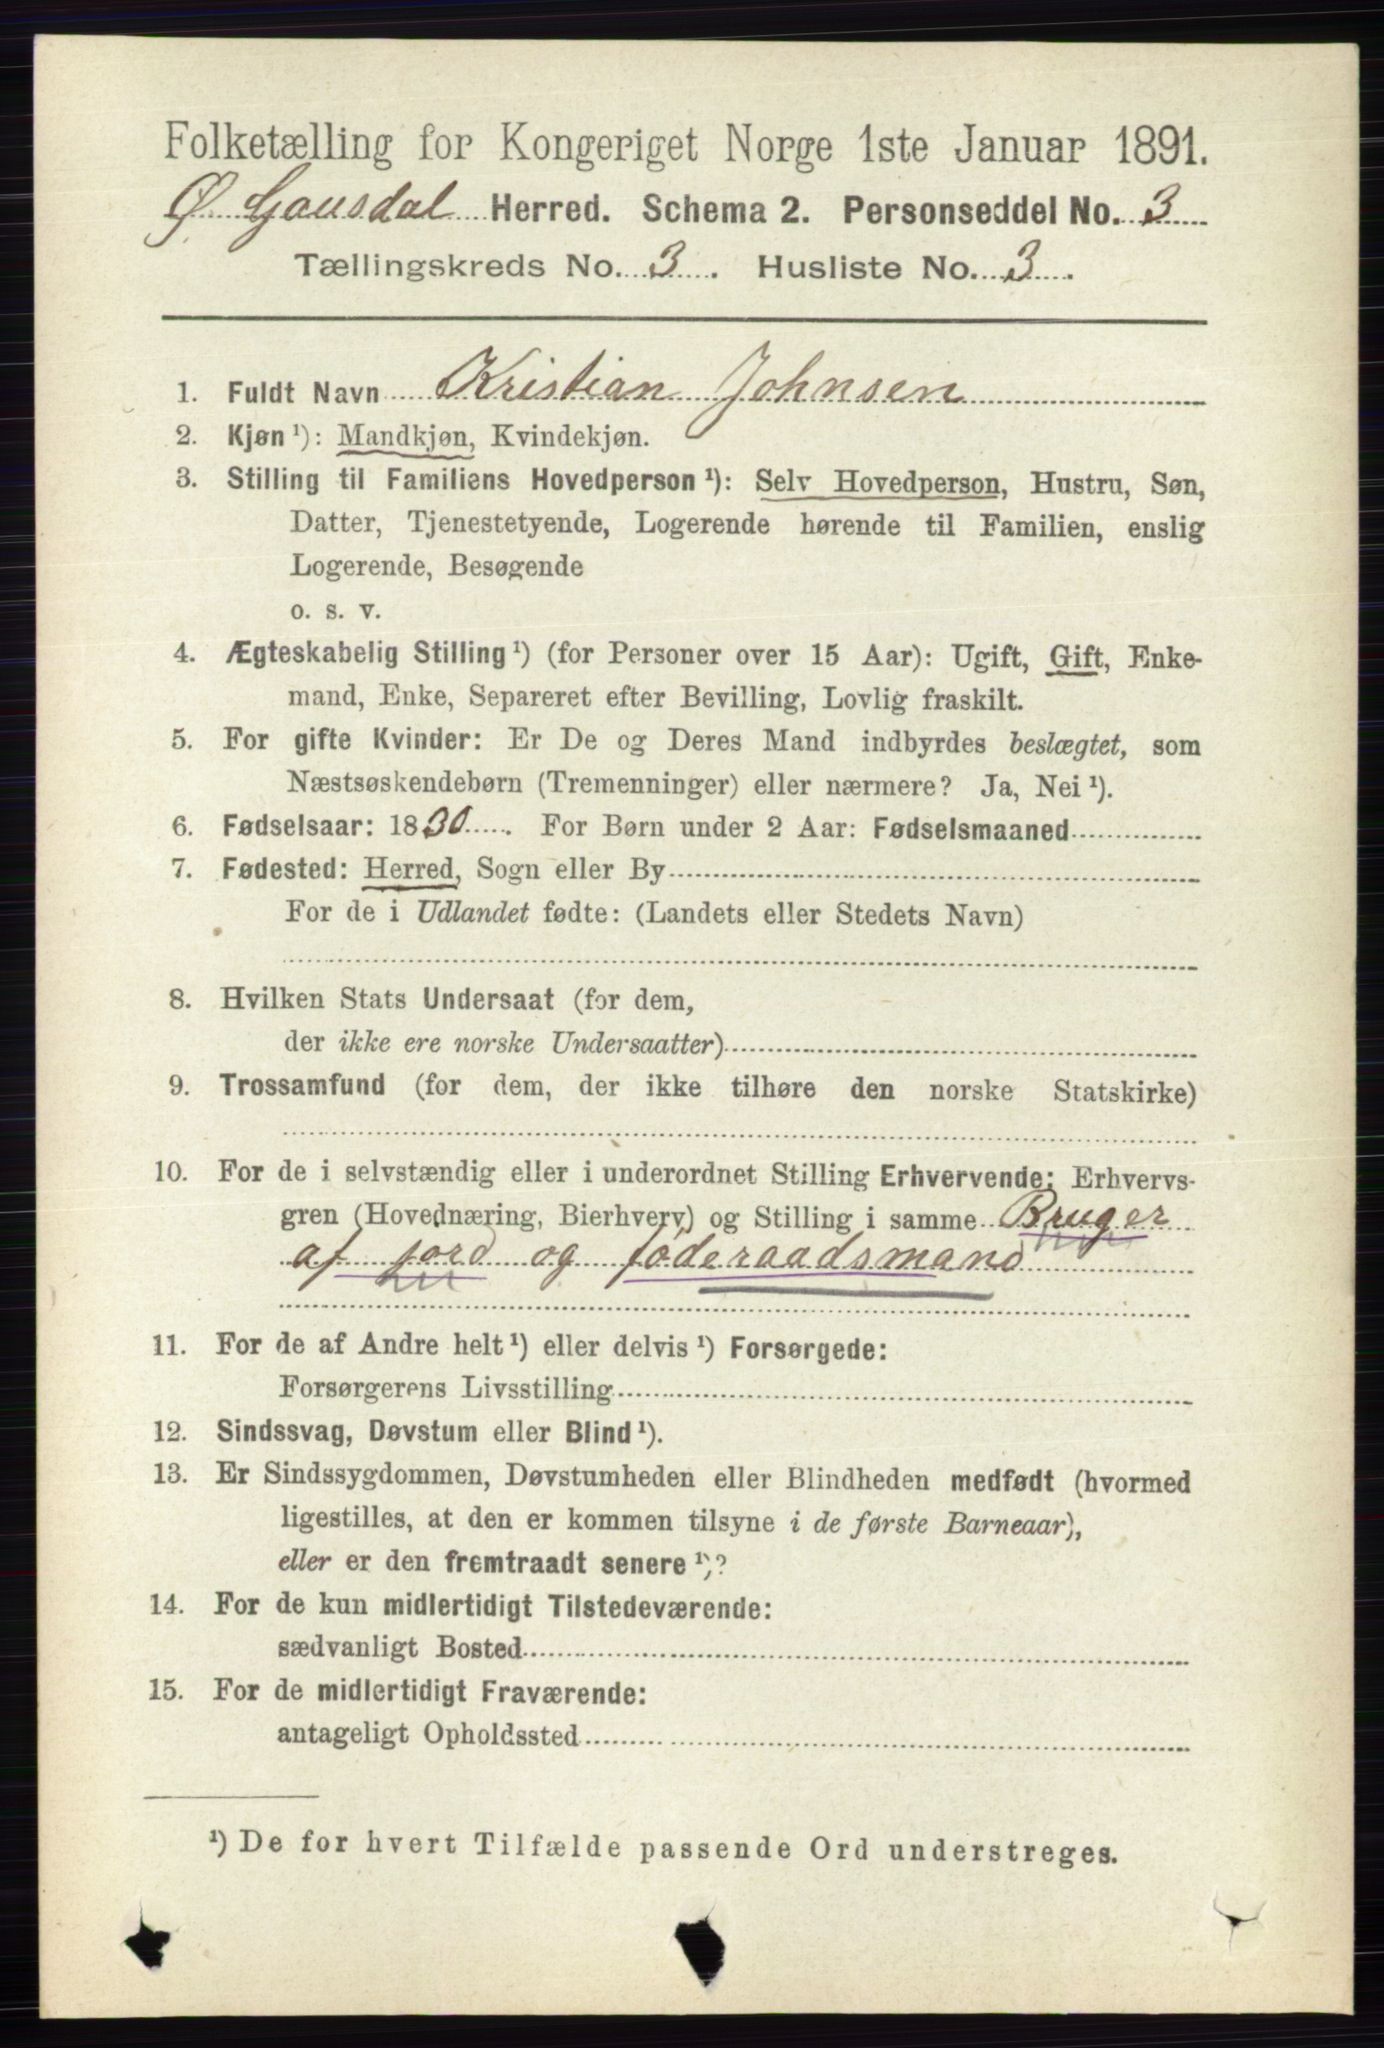 Folketælling for Kongeriget Norge 1ste Januar 1891.
Ø. Gausdal Herred. Schema 2. Personseddel No. 3
Tællingskreds No. 3. Husliste No. 3.
1. Fuldt Navn Kristian Johnsen
2. Kjøn ¹): Mandkjøn, Kvindekjøn.
3. Stilling til Familiens Hovedperson ¹): Selv Hovedperson, Hustru, Søn,
Datter, Tjenestetyende, Logerende hørende til Familien, enslig
Logerende, Besøgende
o. s. v.
4. Ægteskabelig Stilling ¹) (for Personer over 15 Aar): Ugift, Gift, Enke-
mand, Enke, Separeret efter Bevilling, Lovlig fraskilt.
5. For gifte Kvinder: Er De og Deres Mand indbyrdes beslægtet, som
Næstsøskendebørn (Tremenninger) eller nærmere? Ja, Nei ¹).
6. Fødselsaar: 1830. For Børn under 2 Aar: Fødselsmaaned
7. Fødested: Herred, Sogn eller By
For de i Udlandet fødte: (Landets eller Stedets Navn)
8. Hvilken Stats Undersaat (for dem,
der ikke ere norske Undersaatter)
9. Trossamfund (for dem, der ikke tilhøre den norske Statskirke)
10. For de i selvstændig eller i underordnet Stilling Erhvervende: Erhvervs-
gren (Hovednæring, Bierhverv) og Stilling i samme Bruger
af jord og føderaadsmand
11. For de af Andre helt ¹) eller delvis ¹) Forsørgede:
Forsørgerens Livsstilling
12. Sindssvag, Døvstum eller Blind ¹).
13. Er Sindssygdommen, Døvstumheden eller Blindheden medfødt (hvormed
ligestilles, at den er kommen tilsyne i de første Barneaar),
eller er den fremtraadt senere ¹)?
14. For de kun midlertidigt Tilstedeværende:
sædvanligt Bosted
15. For de midlertidigt Fraværende:
antageligt Opholdssted
¹) De for hvert Tilfælde passende Ord understreges.